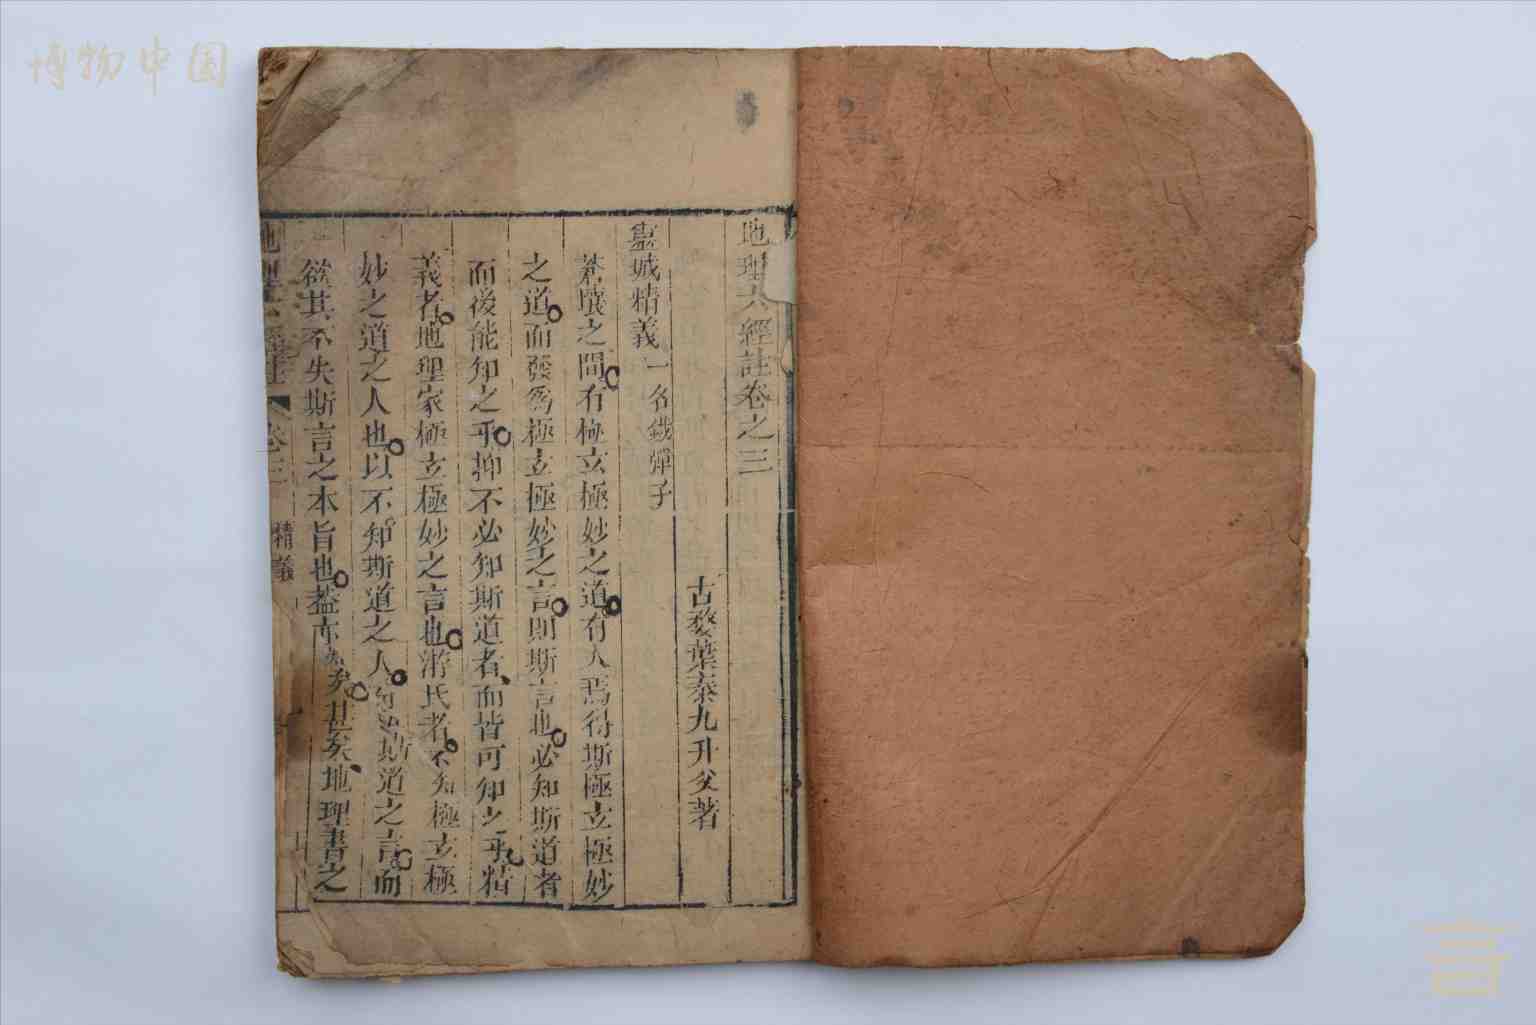 博物中国
地理六經註卷之三
古婺葉泰九升父著
靈城精義 一名鐵彈子
蒼壤之間有極玄極妙之道有人焉得斯極玄極妙
之道而發爲極玄極妙之言則斯言也必知斯道者
而後能知之乎抑不必知斯道者而皆可知之乎精
義者地理家極玄極妙之言也游氏者不知極玄極
妙之道之人也以不知斯道之人斯道之言而
欲其不失斯言之本旨也蓋亦矣甚矣地理書之
地理六經註 卷三 精義
言